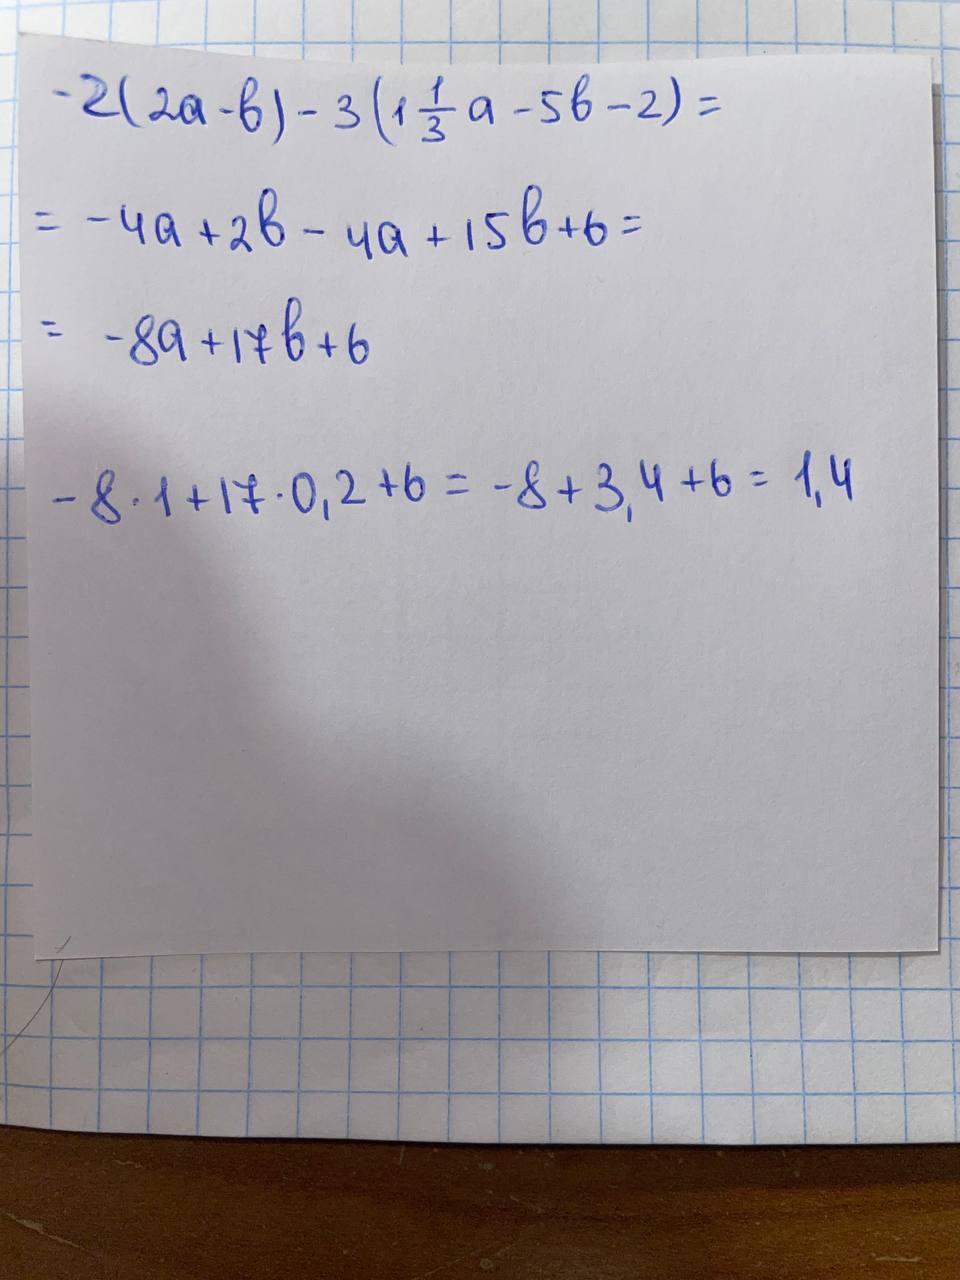 -2(2a-b)-3(1 1/3 a-5b-2)=
= -4a+2b-4a+15b+6=
= -8a+17b+6
-8·1+17·0,2+6=-8+3,4+6=1,4